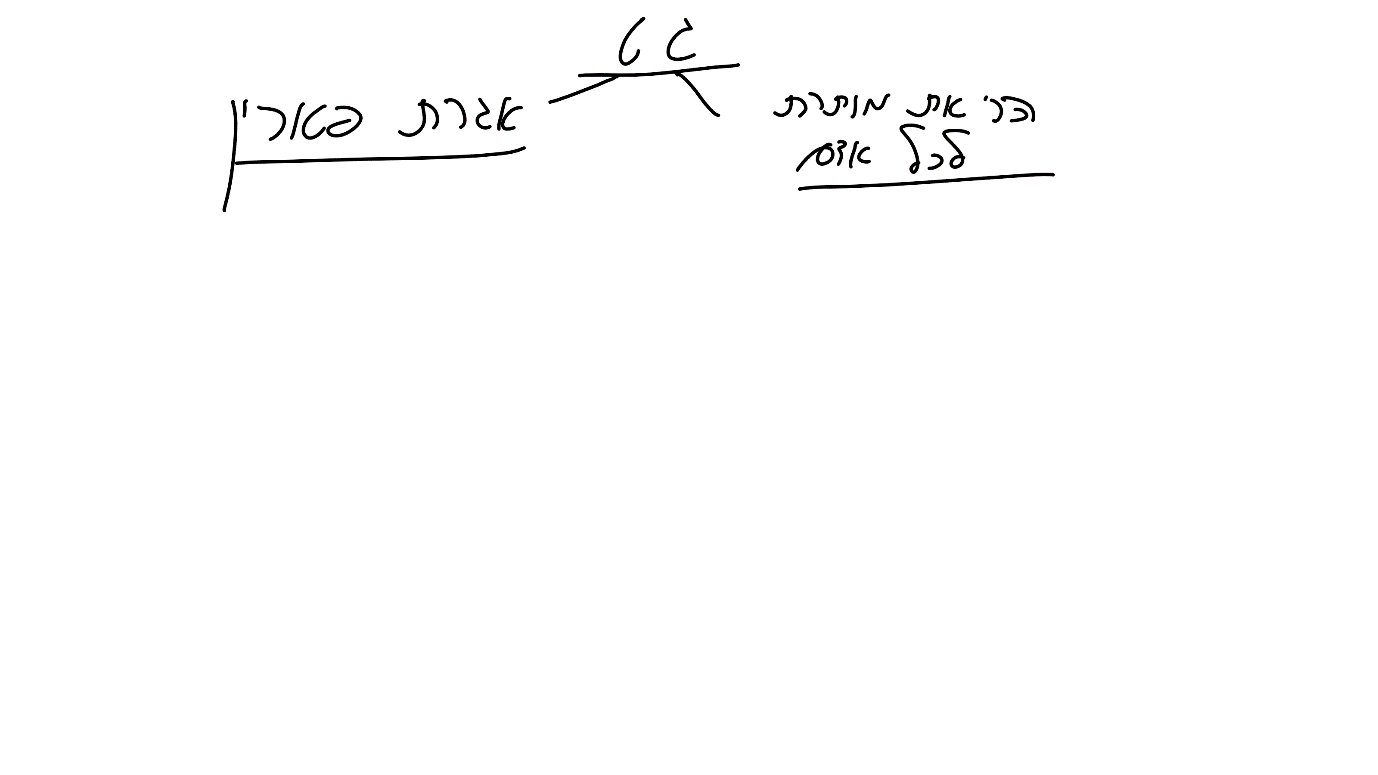 גט
הרי את מותרת
לכל אדם
אגרת פטורין